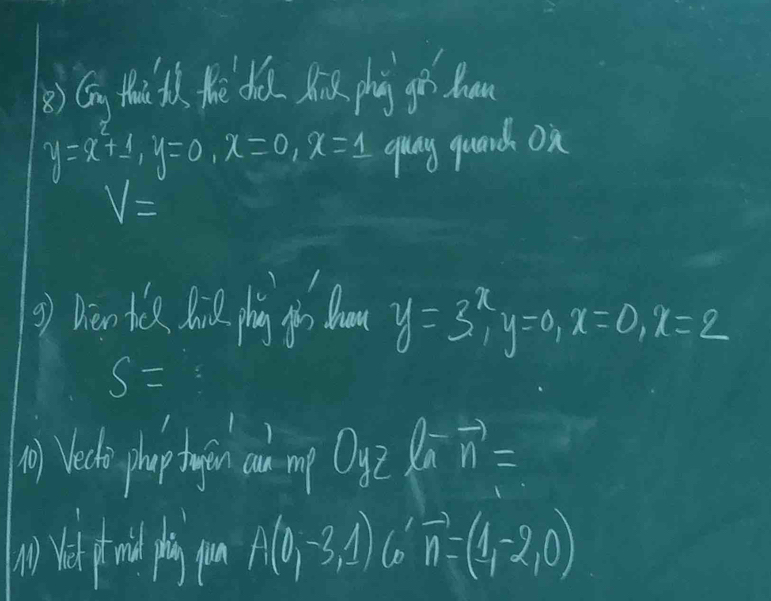 8) Công thức tính thể tích hình phẳng giới hạn
y=x²+1, y=0, x=0, x=1 quay quanh Ox
V=
9) Diện tích hình phẳng giới hạn y=3ˣ, y=0, x=0, x=2
S=
10) Vectơ pháp tuyến của mp Oyz là n⃗ =
11) Viết pt mặt phẳng qua A(0,-3,1) có n⃗=(1,-2,0)